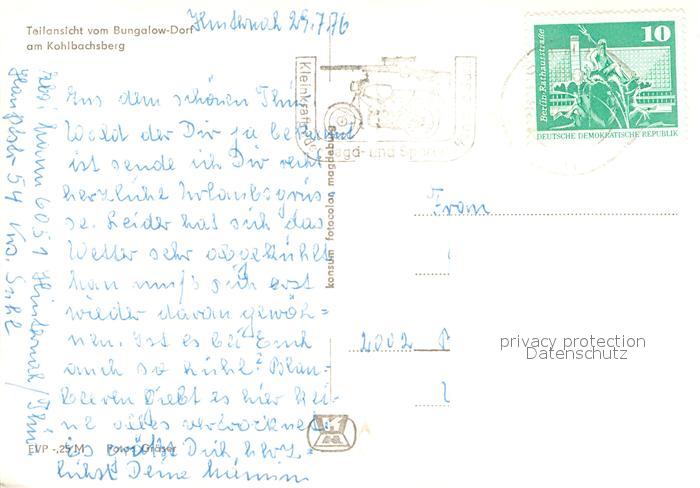 Hinternah 29.7.76
Teilansicht vom Bungalow-Dorf
am Kohlbachsberg
Aus dem schönen Thür.
Wald der Dir ja bekannt
ist sende ich Dir recht
herzliche Urlaubsgrüs=
se. Leider hat sich das
Wetter sehr abgekühlt
man muß sich erst
wieder daran gewöh=
nen. Ist es bei Euch
auch so kühl? Blau-
beeren giebt es hier kei-
ne alles vertrocknet
Es grüßt Dich herz-
lichst Deine
6051 Hinternah / Thür
54 Krs. Suhl
EVP -,25 M Foto: Gräser
konsum fotocolor magdeburg
Kleinkrafträder
Jagd- und Sport
10
Berlin, Rathausstraße
DEUTSCHE DEMOKRATISCHE REPUBLIK
Frau
2002
privacy protection
Datenschutz